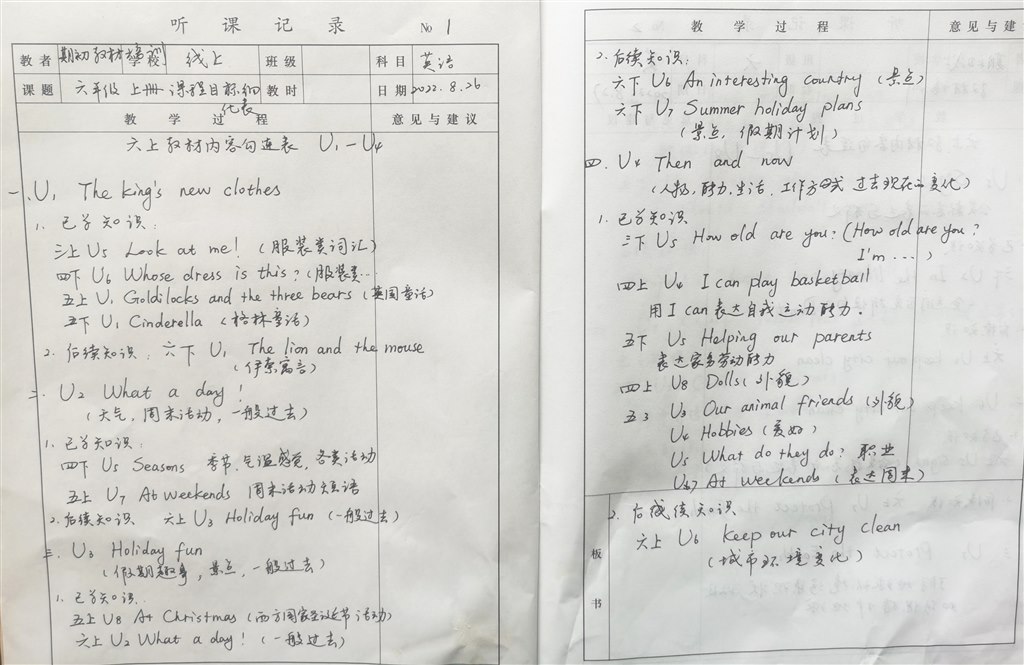 听课记录 No 1
教者 期初教材培训 学校 线上 班级 科目 英语
课题 六年级上册课程目标细化表 教时 日期 2022.8.26
教学过程 意见与建议
六上教材内容勾连表 U1-U4
一、U1 The king's new clothes
1. 已学知识:
三上 U5 Look at me! (服装类词汇)
四下 U6 Whose dress is this? (服装类...
五上 U1 Goldilocks and the three bears (英国童话)
五下 U1 Cinderella (格林童话)
2. 后续知识: 六下 U1 The lion and the mouse
(伊索寓言)
二. U2 What a day!
(天气, 周末活动, 一般过去)
1. 已学知识:
四下 U5 Seasons 季节, 气温感觉, 各类活动
五上 U7 At weekends 周末活动短语
2. 后续知识 六上 U3 Holiday fun (一般过去)
三. U3 Holiday fun
(假期趣事, 景点, 一般过去)
1. 已学知识.
五上 U8 At Christmas (西方国家圣诞节活动)
六上 U2 What a day! (一般过去)
教学过程 意见与建
2. 后续知识:
六下 U6 An interesting country (景点)
六下 U7 Summer holiday plans
(景点, 假期计划)
四. U4 Then and now
(人物, 能力, 生活, 工作方式 过去现在的变化)
1. 已学知识
三下 U5 How old are you? (How old are you?
I'm ...)
四上 U4 I can play basketball
用 I can 表达自我运动能力.
五下 U5 Helping our parents
表达家务劳动能力
四上 U8 Dolls (外貌)
五 U3 Our animal friends (外貌)
U4 Hobbies (爱好)
U5 What do they do? 职业
U7 At weekends (表达周末)
板书
2. 后续知识
六上 U6 keep our city clean
(城市环境变化)